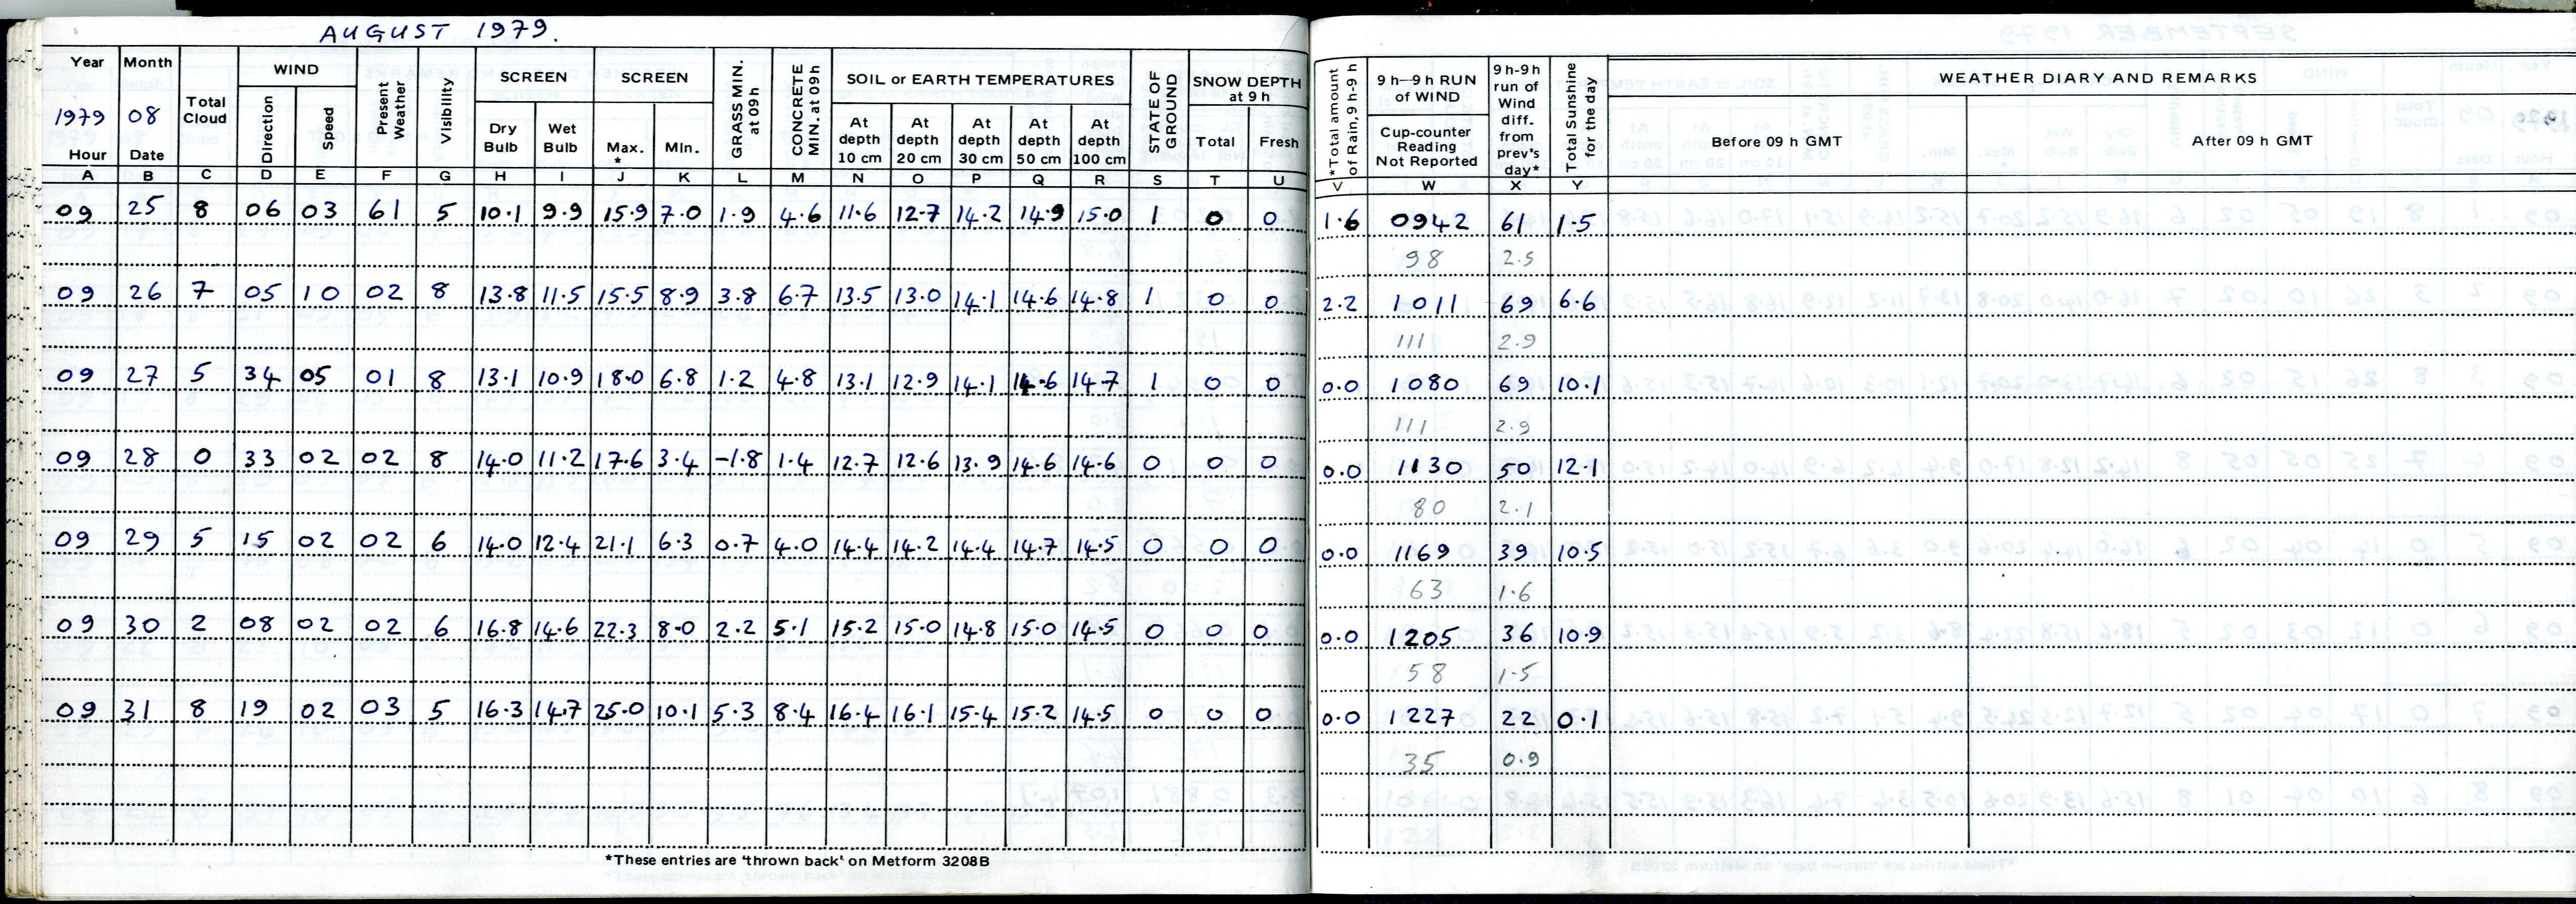 AUGUST 1979.
Year Month Total Cloud WIND Present Weather Visibility SCREEN SCREEN GRASS MIN. at 09h CONCRETE MIN. at 09h SOIL or EARTH TEMPERATURES STATE OF GROUND SNOW DEPTH at 9 h *Total amount of Rain, 9h-9h 9h—9h RUN of WIND 9h-9h run of Wind diff. from prev's day* Total Sunshine for the day WEATHER DIARY AND REMARKS
1979 08 Direction Speed Dry Bulb Wet Bulb Max. * Min. At depth 10 cm At depth 20 cm At depth 30 cm At depth 50 cm At depth 100 cm Total Fresh Cup-counter Reading Not Reported Before 09 h GMT After 09 h GMT
Hour Date
A B C D E F G H I J K L M N O P Q R S T U V W X Y
09 25 8 06 03 61 5 10.1 9.9 15.9 7.0 1.9 4.6 11.6 12.7 14.2 14.9 15.0 1 0 0 1.6 0942 61 1.5
98 2.5
09 26 7 05 10 02 8 13.8 11.5 15.5 8.9 3.8 6.7 13.5 13.0 14.1 14.6 14.8 1 0 0 2.2 1011 69 6.6
111 2.9
09 27 5 34 05 01 8 13.1 10.9 18.0 6.8 1.2 4.8 13.1 12.9 14.1 14.6 14.7 1 0 0 0.0 1080 69 10.1
111 2.9
09 28 0 33 02 02 8 14.0 11.2 17.6 3.4 -1.8 1.4 12.7 12.6 13.9 14.6 14.6 0 0 0 0.0 1130 50 12.1
80 2.1
09 29 5 15 02 02 6 14.0 12.4 21.1 6.3 0.7 4.0 14.4 14.2 14.4 14.7 14.5 0 0 0 0.0 1169 39 10.5
63 1.6
09 30 2 08 02 02 6 16.8 14.6 22.3 8.0 2.2 5.1 15.2 15.0 14.8 15.0 14.5 0 0 0 0.0 1205 36 10.9
58 1.5
09 31 8 19 02 03 5 16.3 14.7 25.0 10.1 5.3 8.4 16.4 16.1 15.4 15.2 14.5 0 0 0 0.0 1227 22 0.1
35 0.9
*These entries are 'thrown back' on Metform 3208B